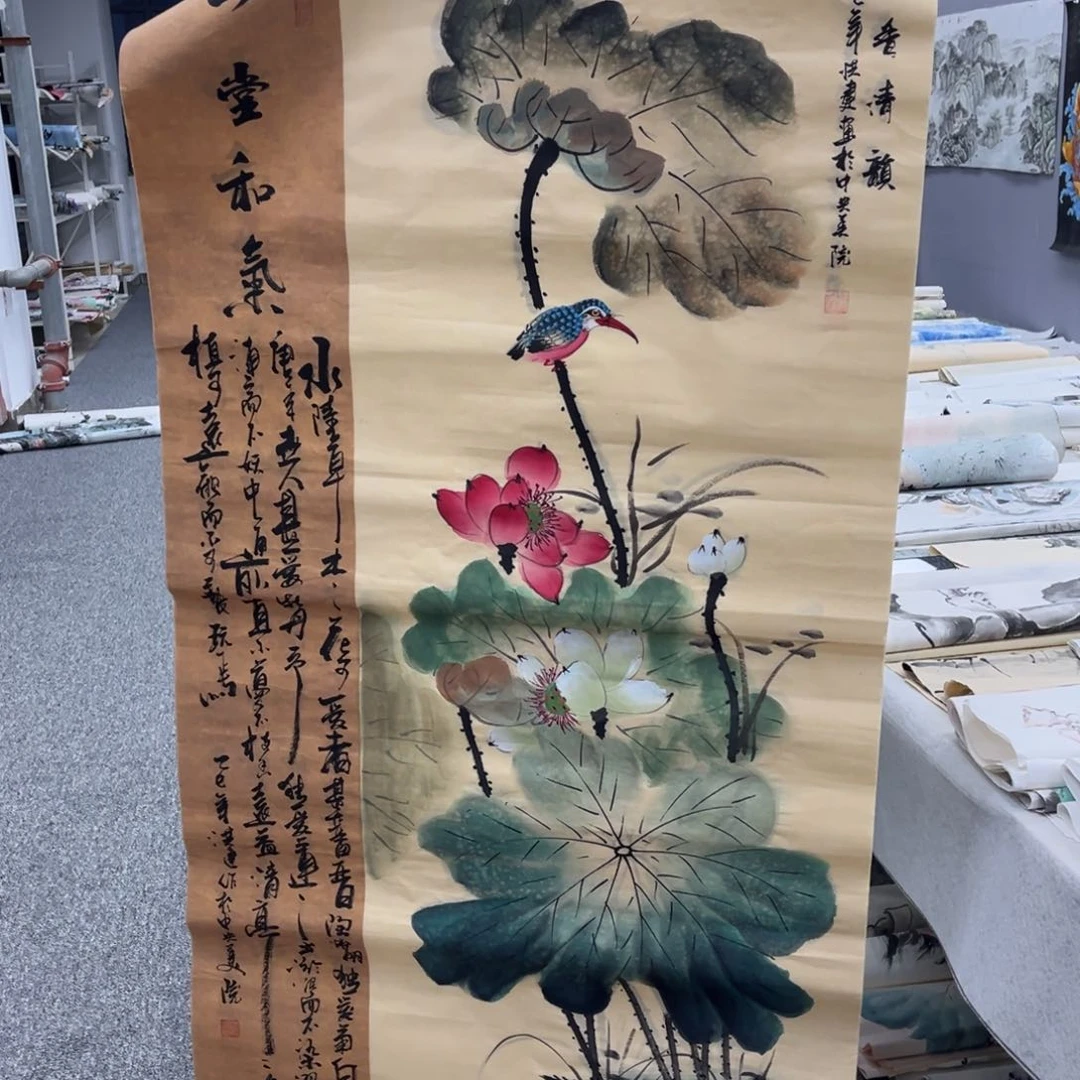 香清韻
年洪建画於中央美院
堂和氣
水陸草木之花可愛者甚蕃晉陶淵明独愛菊自
唐来世人甚愛牡丹予独愛蓮之出淤泥而不染濯
清漣而不妖中通外直不蔓不枝香遠益清亭
植可遠觀而不可褻玩焉
乙巳年洪建作於中央美院